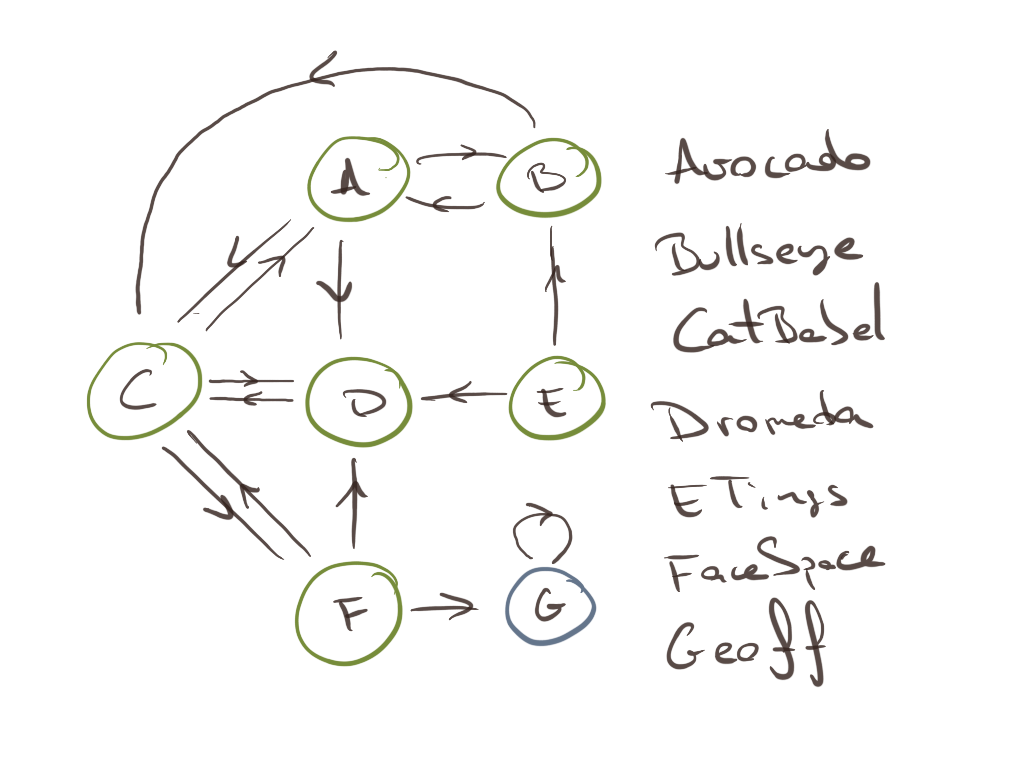 A
B
C
D
E
F
G
Avocado
Bullseye
CatBabel
Dromeda
ETings
FaceSpace
Geoff